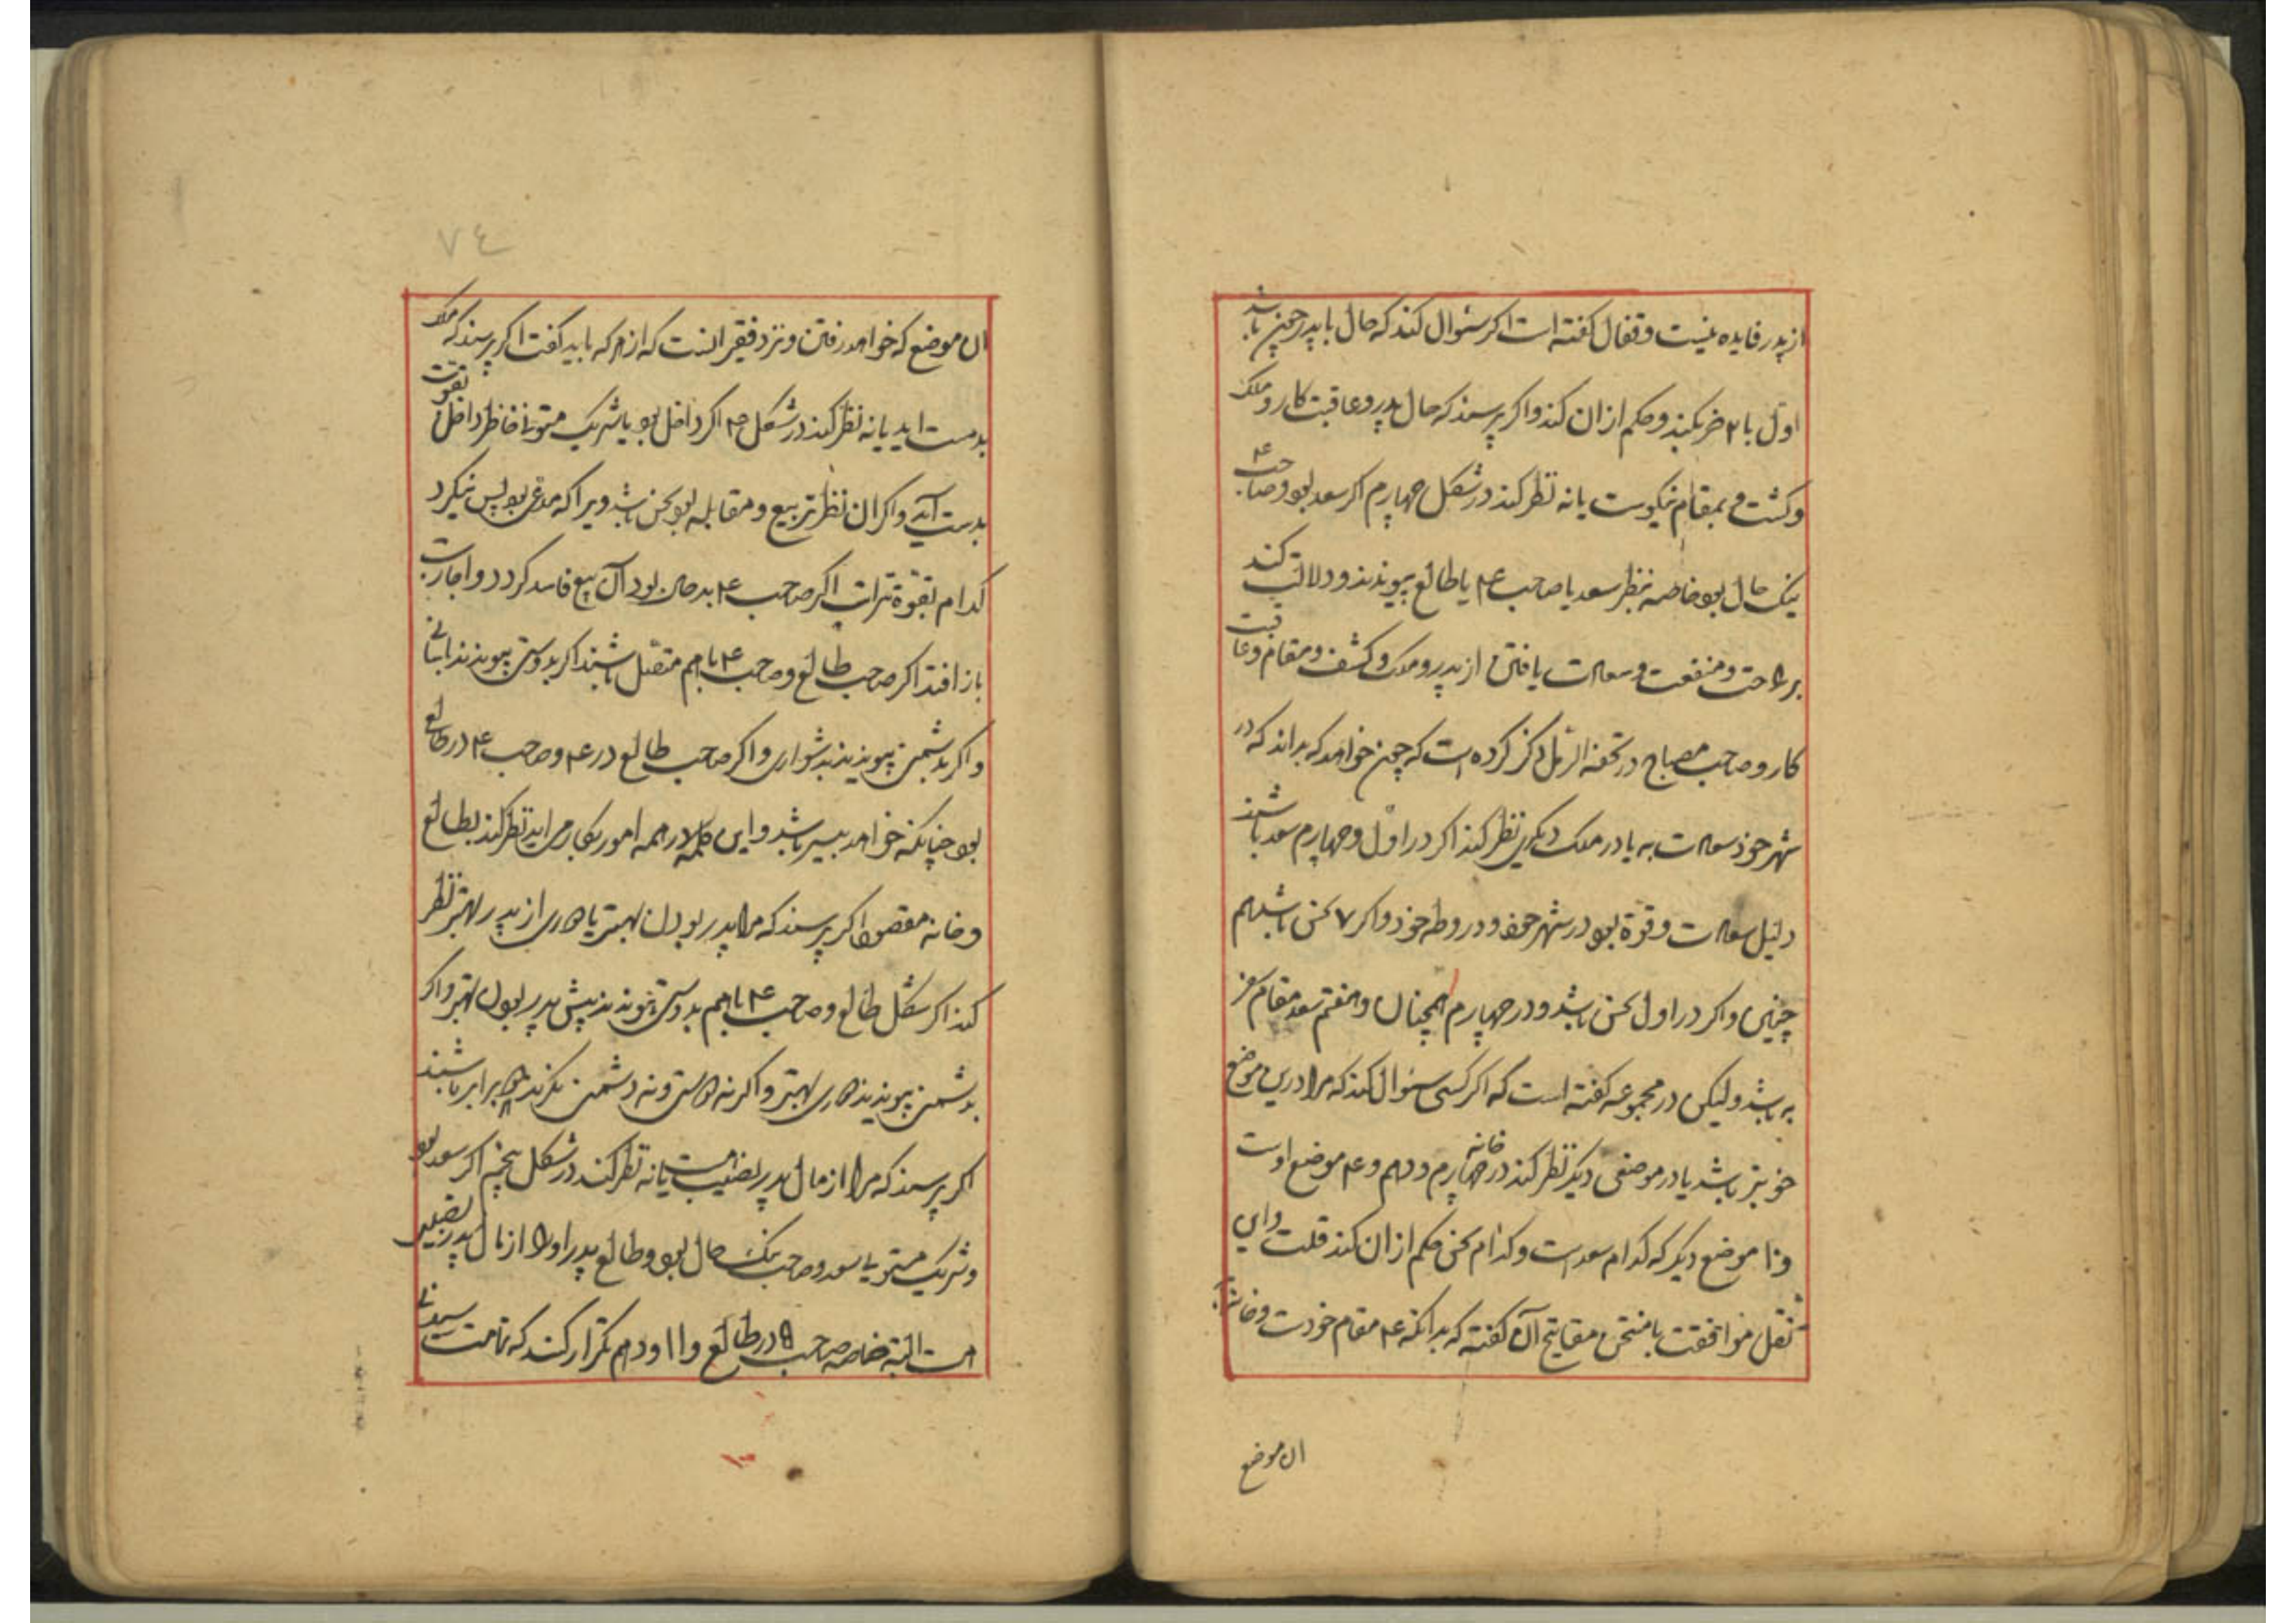 از پدر فایده نیست و قفال کفته است اکر سئوال کند که حال با پدر چون باشد
اول با ۲ ضرب کند و حکم از ان کند واکر پرسند که حال پدر و عاقبت کار و ملک
و کشت و مقام نیکوست یا نه نظر کند در شکل چهارم اکر سعد بود و صاحب ۴
نیک حال بود خاصه بنظر سعد یا صاحب ۴ با طالع پیوندند و دلالت کند
بر راحت و منفعت و سعادت یافتن از پدر و ملک و کشف و مقام و عاقبت
کار و صاحب مصباح در تحفة الرمل ذکر کرده است که چون خواهد که بداند که در
شهر خود سعادت به یا در ملک دیکری نظر کند اکر در اول و چهارم سعد باشند
دلیل سعادت و قوة بود در شهر خود و در وطه خود واکر ۷ نحس باشد هم
چنین واکر در اول نحس باشد و در چهارم همچنان و هفتم سعد مقام سفر
به باشد ولیکن در مجموعه کفته است که اکر کسی سئوال کند که مرا درین موضع
خوبتر باشد یا در موضعی دیکر نظر کند در خانه چهارم و دهم و ۴ موضع اوست
و ۱۰ موضع دیکر که کدام سعد است و کدام نحس حکم از ان کند قلت و این
نقل موافقت با منتخب مقاتیح آن کفته که بدانکه ۴ مقام خودست و خانه
ان موضع
٧٤
ان موضع که خواهد رفتن و نزد فقیر انست که از هر که باید کفت اکر پرسند که ملک
بدست اید یا نه نظر کند در شکل ۴ اکر داخل بود یا شریک متولد ناظر داخل بقوت
بدست آید واکر ان نظر تربیع و مقابله بود نحس باشد ویرا که مدعی بود پس نیکرد
کدام بقوة تراست اکر صاحب ۴ بد حال بود آن بیع فاسد کردد و اجارت
باز افتد اکر صاحب طالع و صاحب ۴ باهم متصل باشند اکر بدوستی پیوندند باسانی
واکر بدشمنی پیوندند بدشواری واکر صاحب طالع در ۴ و صاحب ۴ در طالع
بود چنانکه خواهد میسر باشد و این کلمه در همه امور بکار می اید نظر کند بطالع
و خانه مقصود اکر پرسند که مرا پدر بودن بهتر یا دوری از پدر بهتر نظر
کند اکر شکل طالع و صاحب ۴ باهم بدوستی پیوندند پیش پدر بودن بهتر واکر
بدشمنی پیوندند دوری بهتر واکر نه دوستی و نه دشمنی نکرند برابر باشند
اکر پرسند که مرا از مال پدر نصیب هست یا نه نظر کند در شکل پنجم اکر سعد بود
و شریک مستوی یا سعد و صاحب نیک حال بود و طالع پدر او را از مال پدر نصیبی
هست البته خاصه صاحب ۵ در طالع و ۱۱ و دهم تکرار کند که تمامت